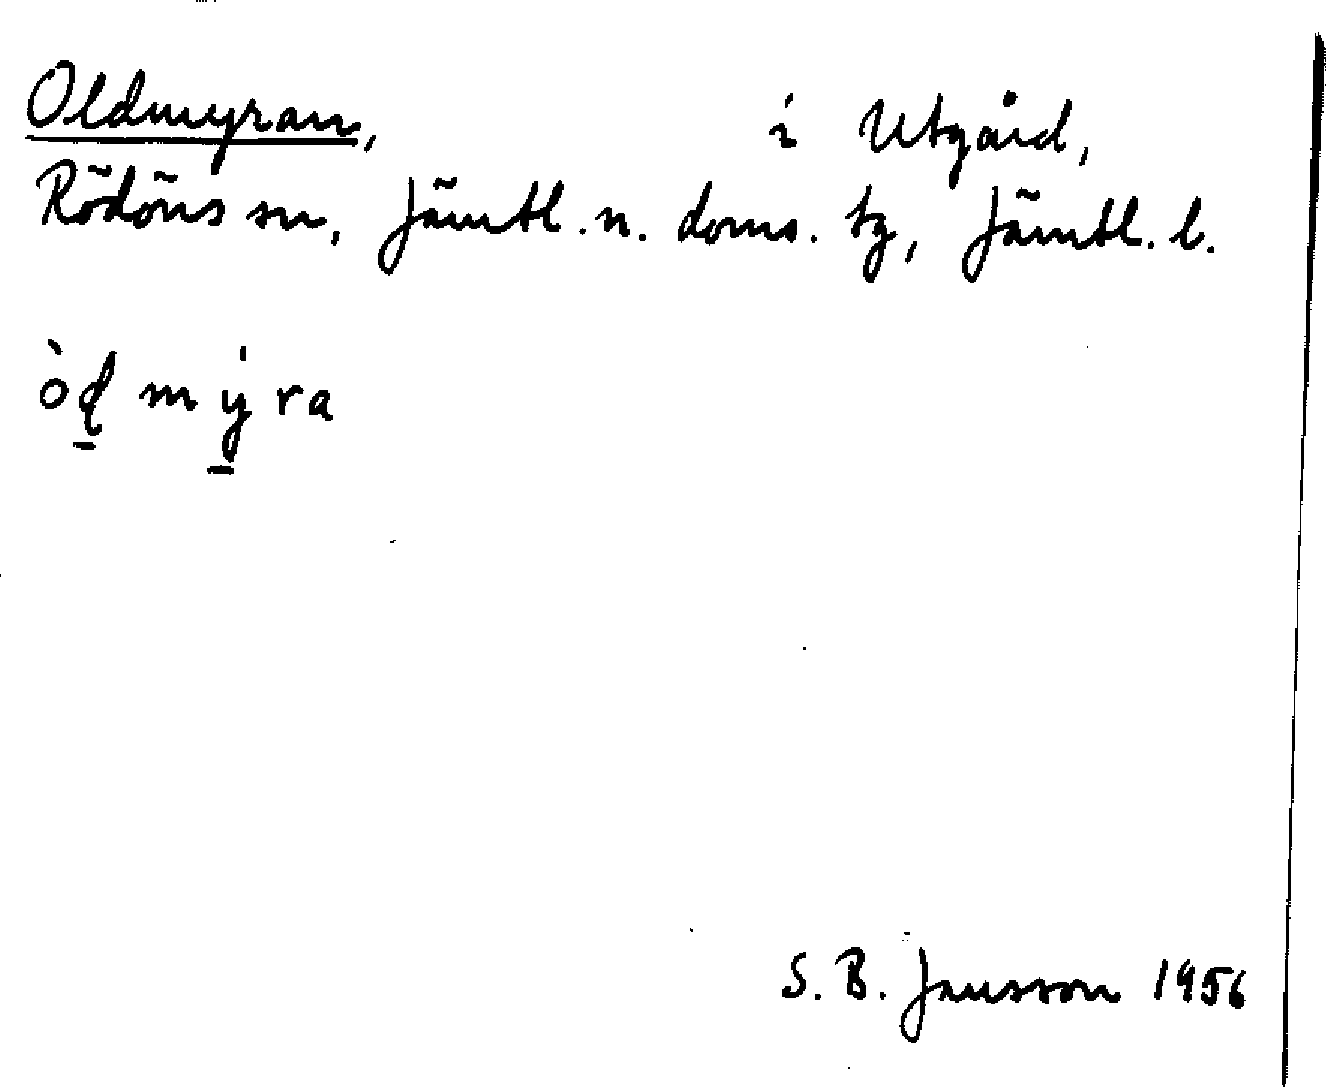 Oldmyran, i Utgård,
Rödöns sn, Jämtl. n. doms. tg, Jämtl. l.
òd̲ mẏ̲ra
S. B. Jansson 1956